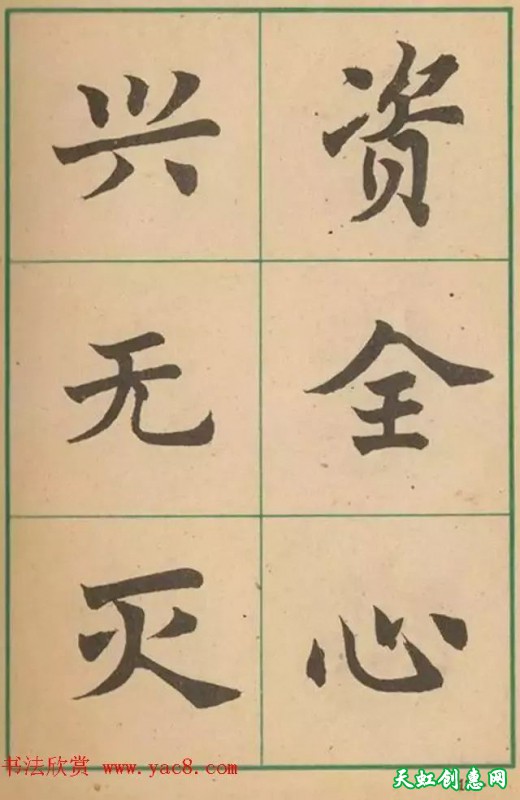 资全心
兴无灭
书法欣赏 www.yac8.com
天虹创惠网